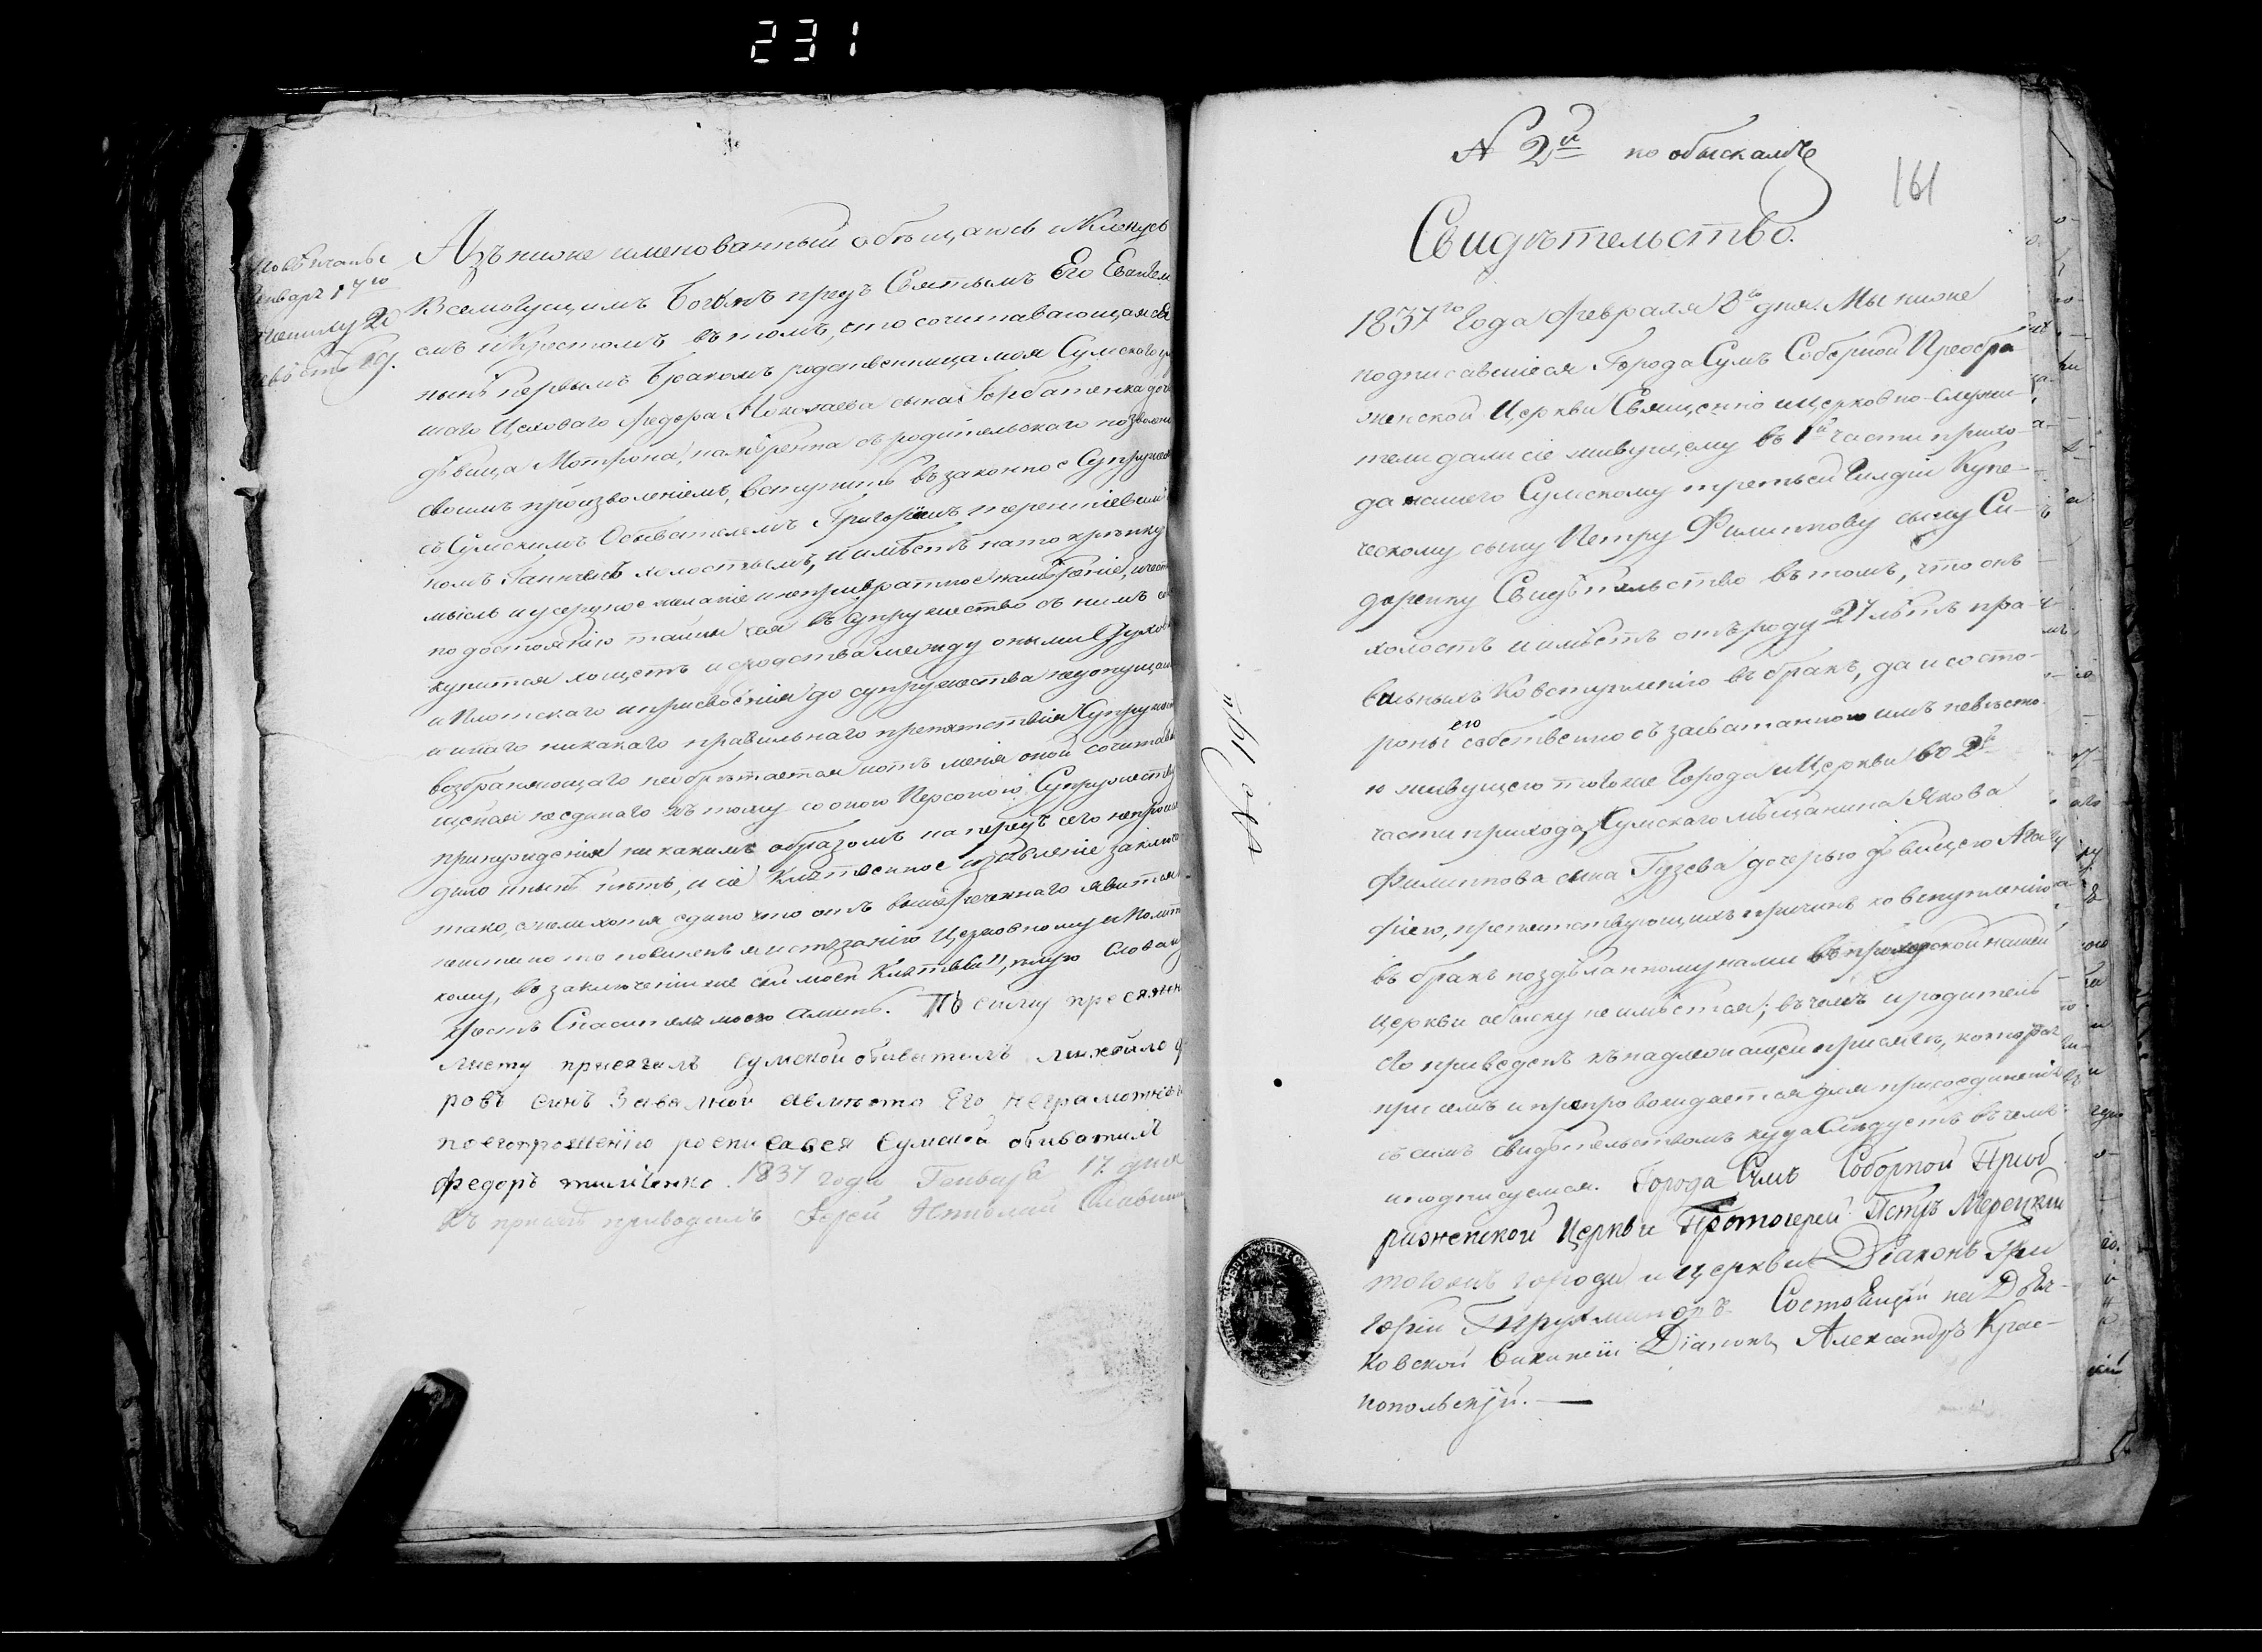 231
Повѣнчаны
Январ: 17го
жениху 20
невѣстѣ
Азъ ниже именованный обѣщаюсь и Кленусь
Всемогущимъ Богомъ предъ Святымъ Его Евангелі
емъ и Крестомъ въ томъ, что сочитавающаяся
нынѣ первымъ бракомъ родственница моя Сумского
Цеховаго Федора Николаева сына Горбатенка доч
дѣвица Мотрона, намѣрена съ родительскаго позволен
своимъ произволеніемъ, вступить въ законное Супружес
съ Сумскимъ Обывателемъ Григоріемъ Терентіевымъ
холостымъ, и имѣетъ на то крѣпку
мысль и усердное желаніе и непревратное намѣреніе, и
по достоянію тайны сея въ Супружество съ нимъ
купится хощетъ и сродства между оными Духов
и Плотскаго и присвоенія до супружества недопущаю
и инаго никакаго правильнаго препятствія Супружес
возбраняющаго необрѣтается и отъ меня оной сочитав
щейся неединаго къ тому со оною Персоною Супружеству
принужденія никакимъ образомъ напередъ сего непроисхо
дило и нынѣ нѣтъ, и сіе Клятвенное изъявленіе заключ
тако, ежели хотя едино что отъ вышереченнаго явится
неистинно то повиненъ я истязанію Церковному и Полит
кому, въ заключеніи же сей моей Клятвы, цѣлую Слова и
Крестъ Спасителя моего Аминь. Къ сему присяжн
листу присягалъ сумской обиватиль михайло
ровъ синъ Завалной авместо Его неграмотнаго
поегопрошенію росписался Сумской обиватиль
Федоръ тимченко. 1837 года Генваря 17 дня
Къ присягѣ приводилъ Іерей Николай
N 2й по обыскамъ
161
Свидѣтельство.
1837го Года Февраля 8го дня. Мы ниже
подписавшіеся Города Сумъ Соборной Преобра
женской Церкви Священно и церковно-служи
тели дали сіе живущему въ 1й части прихо-
да нашего Сумскому третьей Гилдіи Купе-
ческому сыну Петру Филиппову сыну Си-
доренку Свидѣтельство въ томъ, что онъ
холостъ и имѣетъ отъ роду 21 лѣтъ пра-
вильныхъ ко вступленію въ бракъ, да и со сто-
роны его собственно съ засватанною имъ невѣсто
ю живущею тогоже Города и Церкви во 2й
части прихода, Сумскаго мѣщанина Якова
Филиппова сына Гузева дочерью дѣвицею Ага
фіею, препятствующихъ причинъ ко вступленію
въ бракъ поздѣланному нами въ приходской нашей
церкви обыску не имѣется; въ чемъ и родитель
Его приведенъ къ надлежащей присягѣ, которая
при семъ и препровождается для присоединенія
съ симъ свидѣтельствомъ куда Слѣдуетъ въ чемъ
и подписуемся. Города Сумъ Соборной Преоб
раженской Церкви Протоіерей Петръ Мерецкій
тогожъ города и церкви Діаконъ Гри
горій
Состоящій на Дьяч-
ковской Вакансіи Діаконъ Александръ Крас-
нопольскій.
№ 19й.